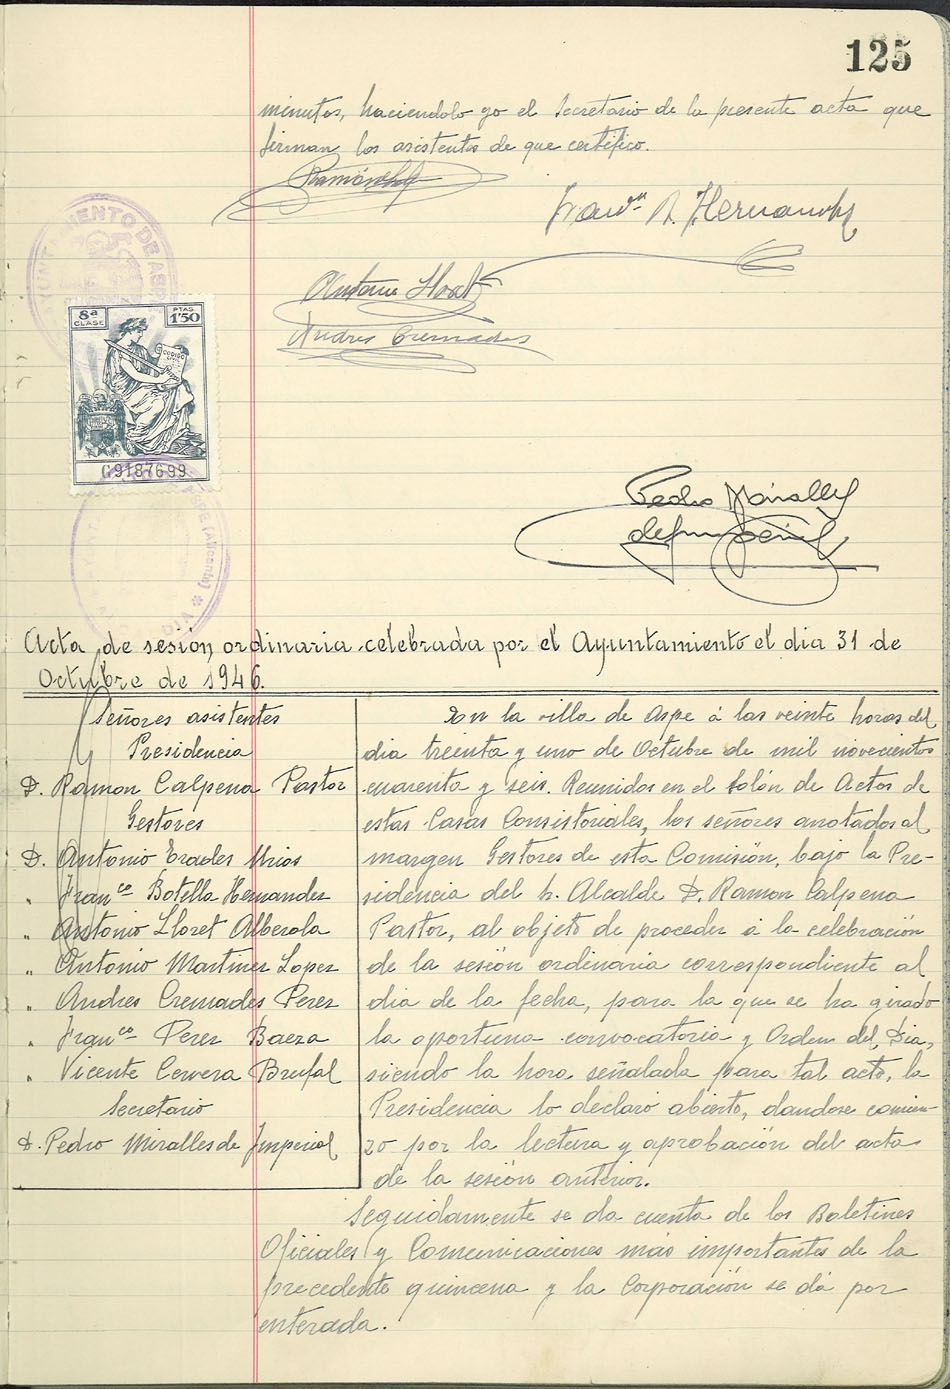 125
minutos, haciendolo yo el Secretario de la presente acta que
firman los asistentes de que certifico.
Hernandez
AYUNTAMIENTO DE ASP
Antonio Lloret
8ª CLASE
PTAS 1'50
Andres Cremades
G9187699
ASPE (Alicante)
Pedro Miralles
de Imperial
Acta de sesión ordinaria celebrada por el Ayuntamiento el dia 31 de
Octubre de 1946.
Señores asistentes
Presidencia
D. Ramon Calpena Pastor
Gestores
D. Antonio Erades Mrios
" Franco Botella Hernandez
" Antonio Lloret Alberola
" Antonio Martinez Lopez
" Andres Cremades Perez
" Franco Perez Baeza
" Vicente Cervera Brufal
Secretario
D. Pedro Miralles de Imperial
En la villa de Aspe á las veinte horas del
dia treinta y uno de Octubre de mil novecientos
cuarenta y seis. Reunidos en el Salón de Actos de
estas Casas Consistoriales, los señores anotados al
margen Gestores de esta Comisión, bajo la Pre-
sidencia del Sr. Alcalde D. Ramon Calpena
Pastor, al objeto de proceder á la celebración
de la sesión ordinaria correspondiente al
dia de la fecha, para la que se ha girado
la oportuna convocatoria y Orden del Dia,
siendo la hora señalada para tal acto, la
Presidencia lo declaró abierto, dandose comien-
zo por la lectura y aprobación del acta
de la sesión anterior.
Seguidamente se da cuenta de los Boletines
Oficiales y Comunicaciones más importantes de la
precedente quincena y la Corporación se dá por
enterada.